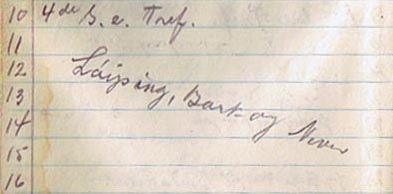 10 4de S. e. Tref.
11
12 Løiping, Bark og Never
13
14
15
16